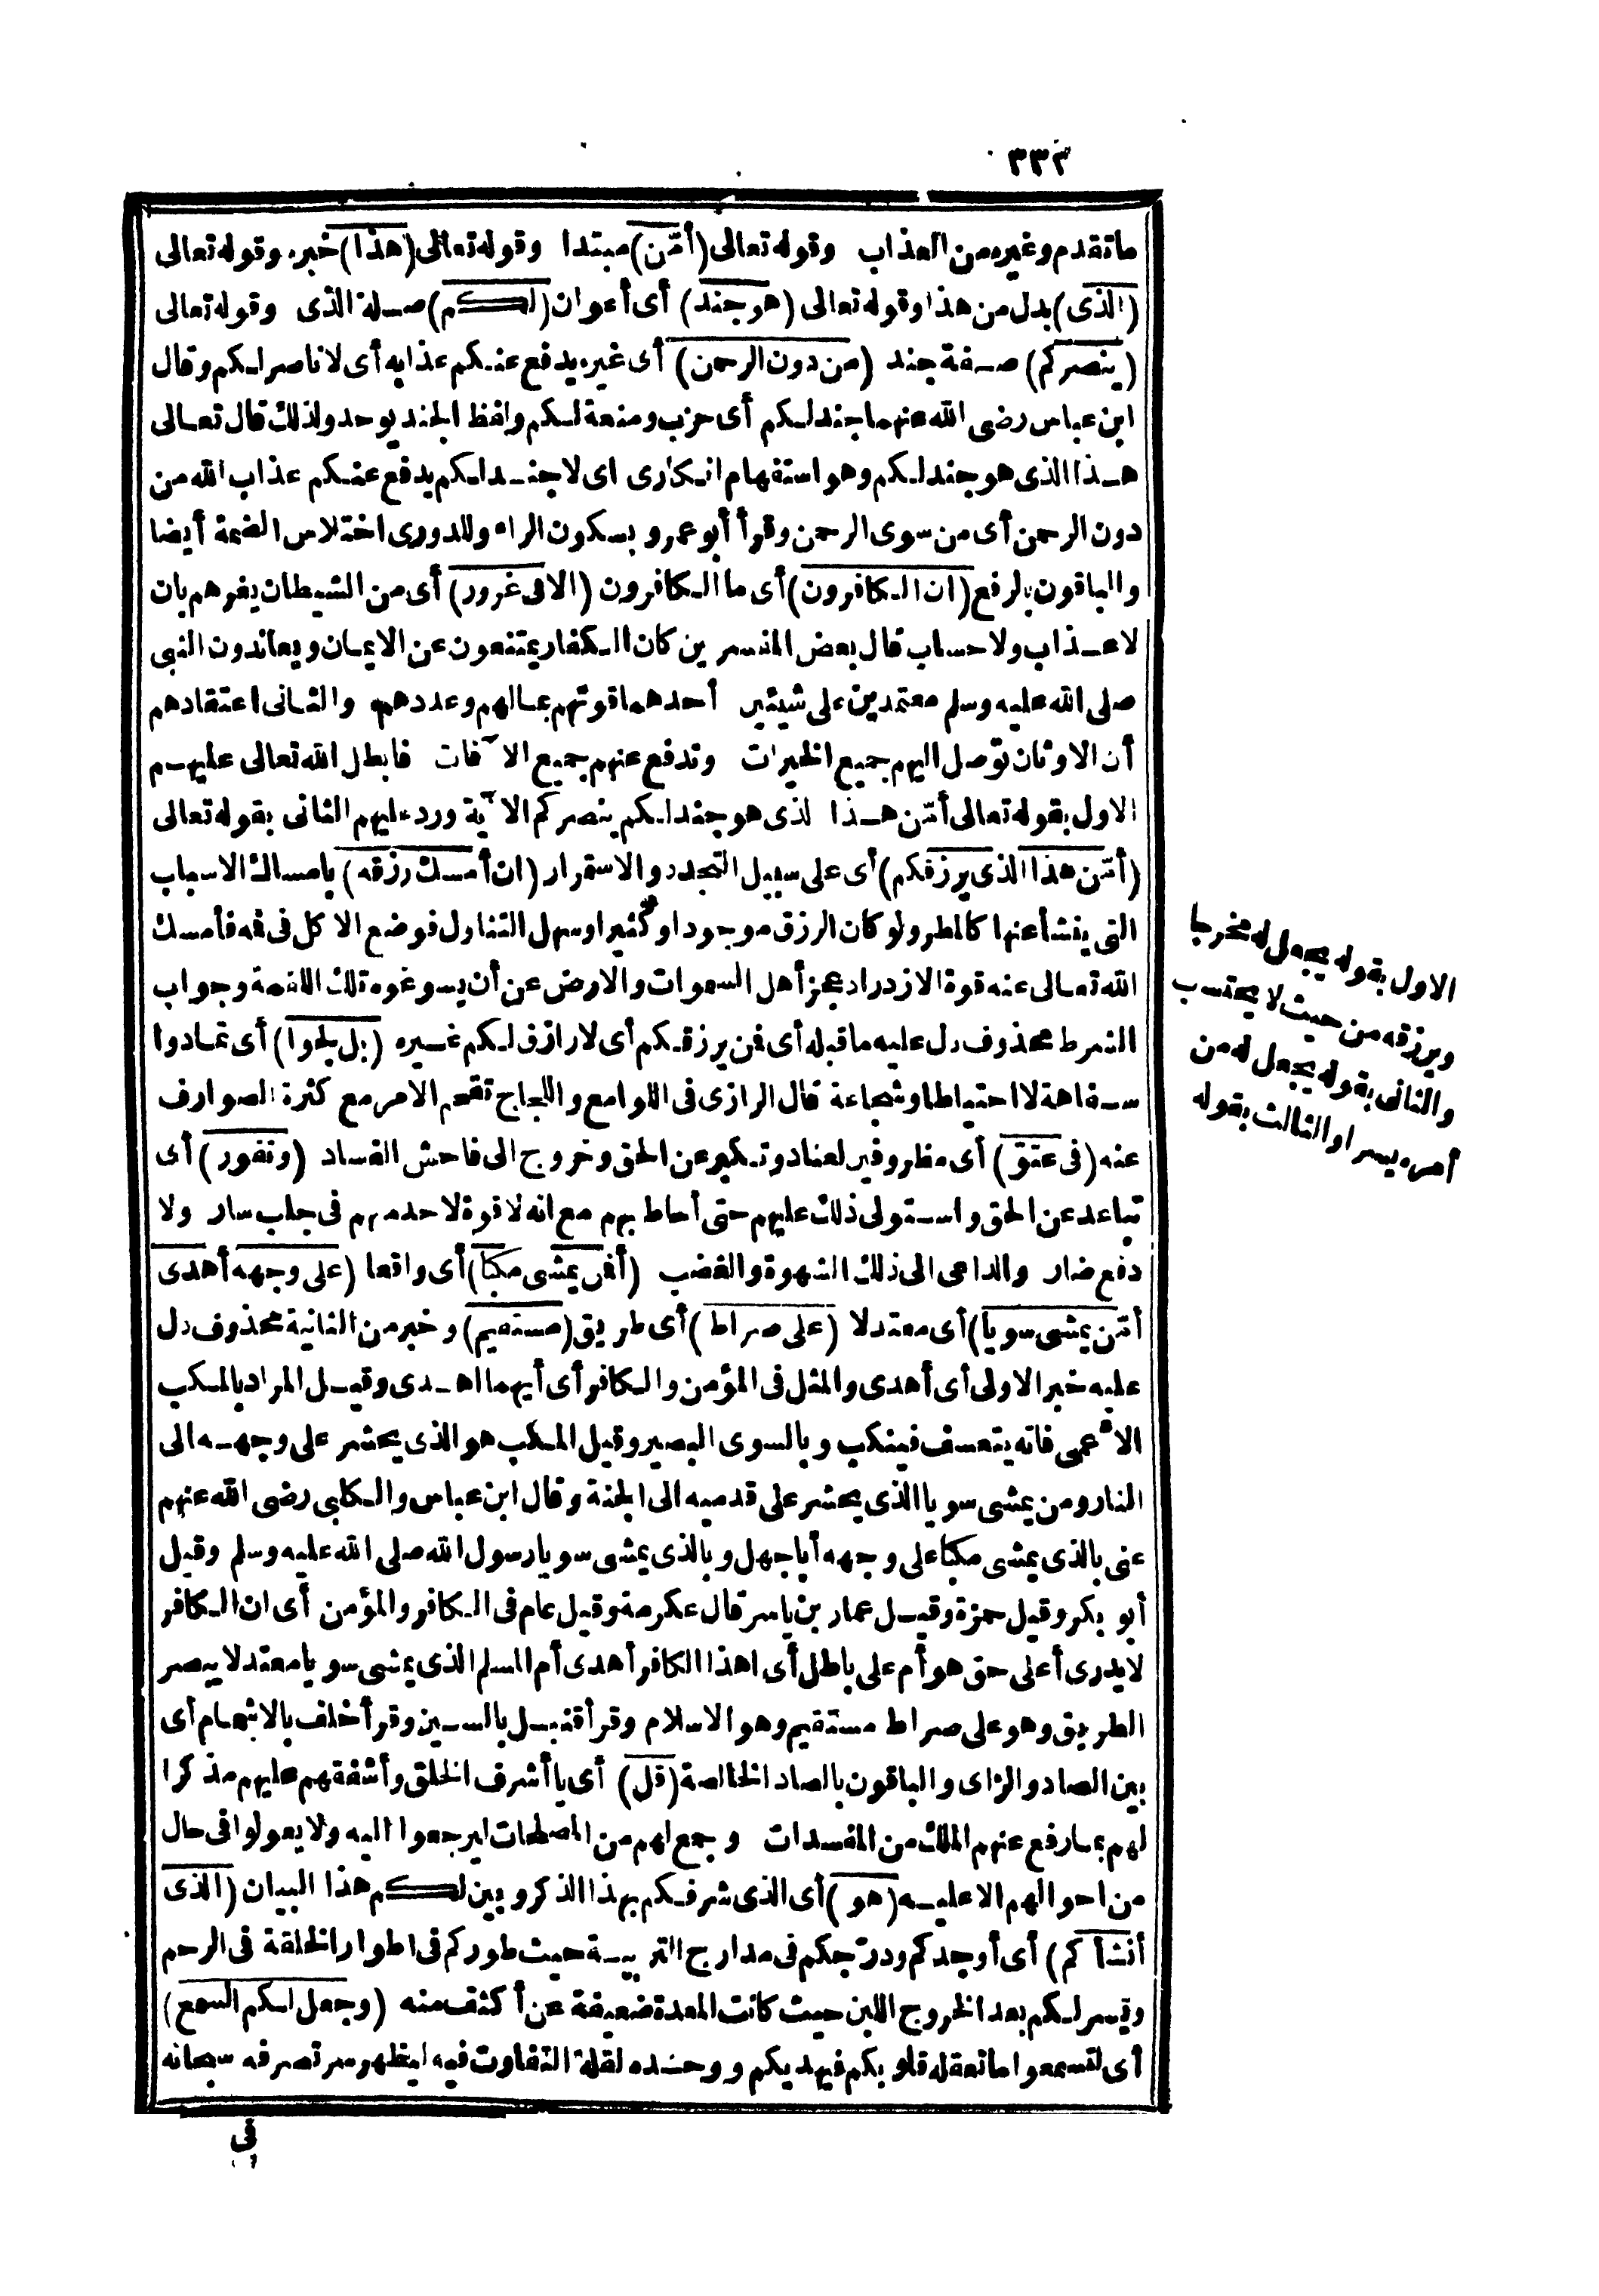 ٣٣٢
ما تقدم وغيره من العذاب وقوله تعالى (أمّن) مبتدا وقوله تعالى (هذا) خبره وقوله تعالى
(الذى) بدل من هذا وقوله تعالى (هو جند) أى أعوان (لكم) صلة الذى وقوله تعالى
(ينصركم) صفة جند (من دون الرحمن) أى غيره يدفع عنكم عذابه أى لا ناصر لكم وقال
ابن عباس رضى الله عنهما جند لكم أى حزب ومنعة لكم ولفظ الجند يوحد ولذلك قال تعالى
هذا الذى هو جند لكم وهو استفهام انكارى اى لا جند لكم يدفع عنكم عذاب الله من
دون الرحمن أى من سوى الرحمن وقرأ أبو عمرو بسكون الراء وللدورى اختلاس الضمة أيضا
والباقون بالرفع (ان الكافرون) أى ما الكافرون (الا فى غرور) أى من الشيطان يغرهم بان
لا عذاب ولا حساب قال بعض المفسرين كان الكفار يمتنعون عن الايمان ويعاندون النبى
صلى الله عليه وسلم معتمدين على شيئين أحدهما قوتهم بمالهم وعددهم والثانى اعتقادهم
أن الاوثان توصل اليهم جميع الخيرات وتدفع عنهم جميع الآفات فابطل الله تعالى عليهم
الاول بقوله تعالى أمّن هذا الذى هو جند لكم ينصركم الآية ورد عليهم الثانى بقوله تعالى
(أمّن هذا الذى يرزقكم) أى على سبيل التجدد والاستمرار (ان أمسك رزقه) بامساك الاسباب
التى ينشأ عنها كالمطر ولو كان الرزق موجودا و كثيرا وسهل التناول فوضع الاكل فى فمه فأمسك
الله تعالى عنه قوة الازدراد عجز أهل السموات والارض عن أن يسوغوه تلك اللقمة وجواب
الشرط محذوف دل عليه ما قبله أى فمن يرزقكم أى لا رازق لكم غيره (بل لجوا) أى تمادوا
سفاهة لا احتياطا وشجاعة قال الرازى فى اللوامع واللجاج تقحم الامر مع كثرة الصوارف
عنه (فى عتوّ) أى مظروفين لعناد وتكبر عن الحق وخروج الى فاحش الفساد (ونفور) أى
تباعد عن الحق واستولى ذلك عليهم حتى أحاط بهم مع انه لا قوة لاحد منهم فى جلب سار ولا
دفع ضار والداعى الى ذلك الشهوة والغضب (أفمن يمشى مكبا) أى واقعا (على وجهه أهدى
أمّن يمشى سويا) أى معتدلا (على صراط) أى طريق (مستقيم) وخبر من الثانية محذوف دل
عليه خبر الاولى أى أهدى والمثل فى المؤمن والكافر أى أيهما اهدى وقيل المراد بالمكب
الاعمى فانه يتعسف فينكب وبالسوى البصير وقيل المكب هو الذى يحشر على وجهه الى
النار ومن يمشى سويا الذى يحشر على قدميه الى الجنة وقال ابن عباس والكلبى رضى الله عنهم
عنى بالذى يمشى مكبا على وجهه أبا جهل وبالذى يمشى سويا رسول الله صلى الله عليه وسلم وقيل
أبو بكر وقيل حمزة وقيل عمار بن ياسر قال عكرمة وقيل عام فى الكافر والمؤمن أى ان الكافر
لا يدرى أعلى حق هو أم على باطل أى اهذا الكافر أهدى أم المسلم الذى يمشى سويا معتدلا يبصر
الطريق وهو على صراط مستقيم وهو الاسلام وقرأ قنبل بالسين وقرأ خلف بالاشمام أى
بين الصاد والزاى والباقون بالصاد الخالصة (قل) أى يا أشرف الخلق وأشفقهم عليهم مذكرا
لهم بما رفع عنهم الملك من المفسدات وجمع لهم من المصلحات ليرجعوا اليه ولا يعولوا فى حال
من احوالهم الا عليه (هو) أى الذى شرفكم بهذا الذكر وبين لكم هذا البيان (الذى
أنشأكم) أى أوجدكم ودرّجكم فى مدارج التربية حيث طوركم فى اطوار الخلقة فى الرحم
ويسر لكم بعد الخروج اللبن حيث كانت المعدة ضعيفة عن أكثف منه (وجعل لكم السمع)
أى لتسمعوا ما تعقله قلوبكم فيهديكم ووحده لقلة التفاوت فيه ليظهر سر تصرفه سبحانه
فى
الاول بقوله يجعل له مخرجا
ويرزقه من حيث لا يحتسب
والثانى بقوله يجعل له من
أمره يسرا والثالث بقوله